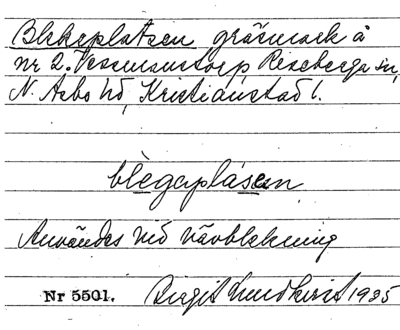 Blekeplatsen gräsmark å
nr 2. Vessmantorp, Riseberga sn,
N. Åsbo hd, Kristianstad l.
blègaplásen
Användes vid vävblekning
Nr 5501. Birgit Lundkvist 1935